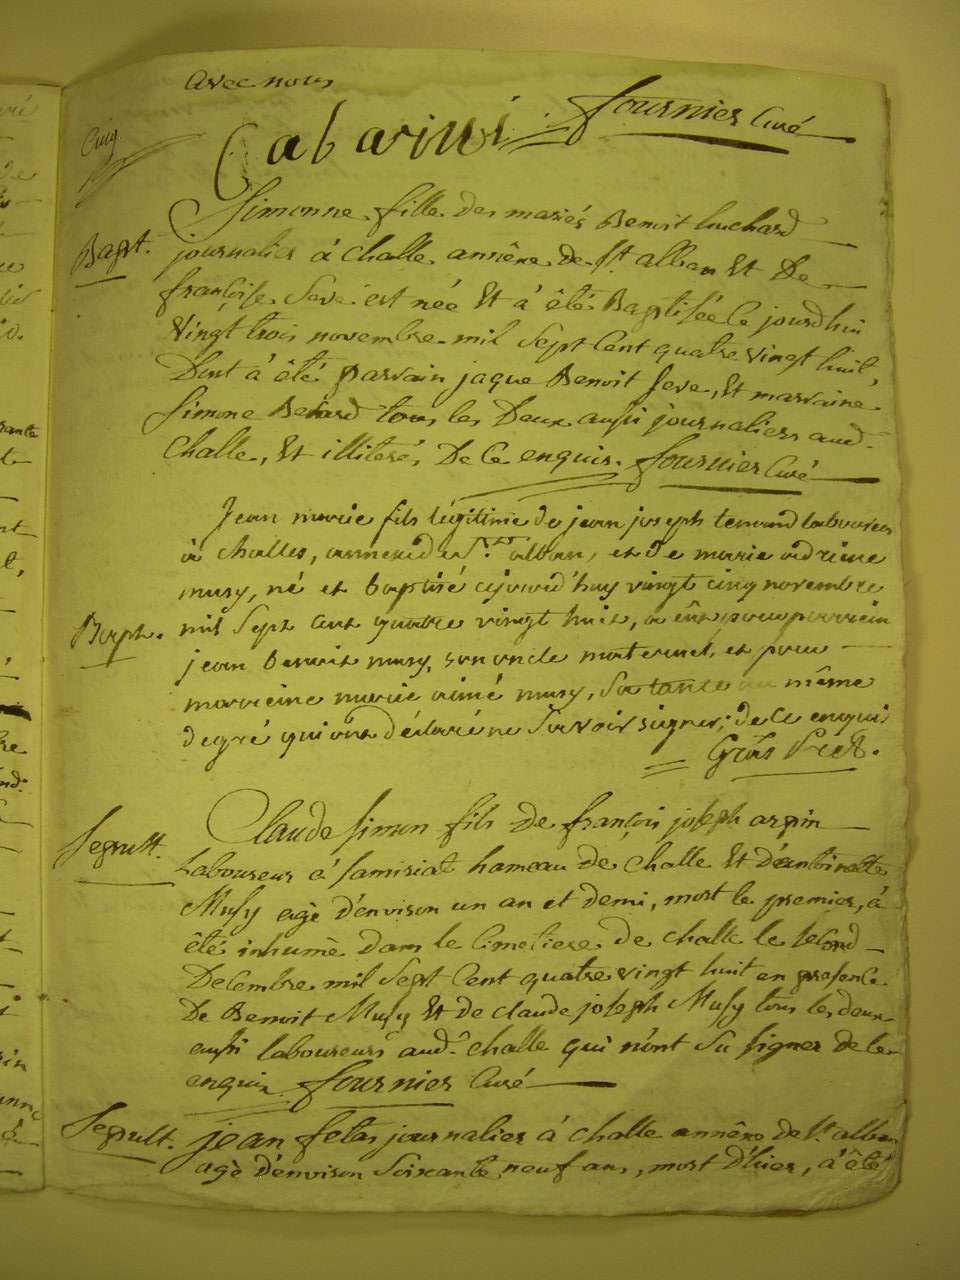 avec nous
Cabarius fournier Curé
Cinq
Bapt.
Simonne fille des mariés Benoit huchard
journalier à Challe annêxe de St. alban Et De
françoise Seve est née Et à été Baptisée Ce jourdhui
Vingt trois novembre mil Sept Cent quatre vingt huit,
Dont à été parrain jaque Benoit Seve, Et marraine
Simone Betard tous les Deux aussi journaliers aud.
Challe, Et illiteré, De Ce enquis. fournier Curé
Bapt.
Jean marie fils légitime de jean joseph tenand laboureur
à challes, annexe de St. alban, et de marie adriene
musy, né et baptisé cejourd'huy vingt cinq novembre
mil Sept cent quatre vingt huit, a eut pour parrein
jean benoit musy, son oncle maternel, et pour
marreine marie aimé musy, Sa tante au même
degré qui ont déclaré ne Savoir signer; de ce enquis
Gras
Sepult.
Claude Simon fils de françois joseph arpin
Laboureur à Samisiat hameau de Challe Et d'antoinette
Musy agé d'environ un an et demi, mort le premier, à
été inhumé dans le Cimetiere de challe le second
Decembre mil Sept Cent quatre vingt huit en presence
De Benoit Musy Et de claude joseph Musy tous les deux
aussi laboureurs aud. challe qui n'ont Su signer de ce
enquis fournier Curé
Sepult.
jean fetas journalier à challe annêxe de St. alban
agé d'environ Soixante neuf ans, mort D'hier, à été